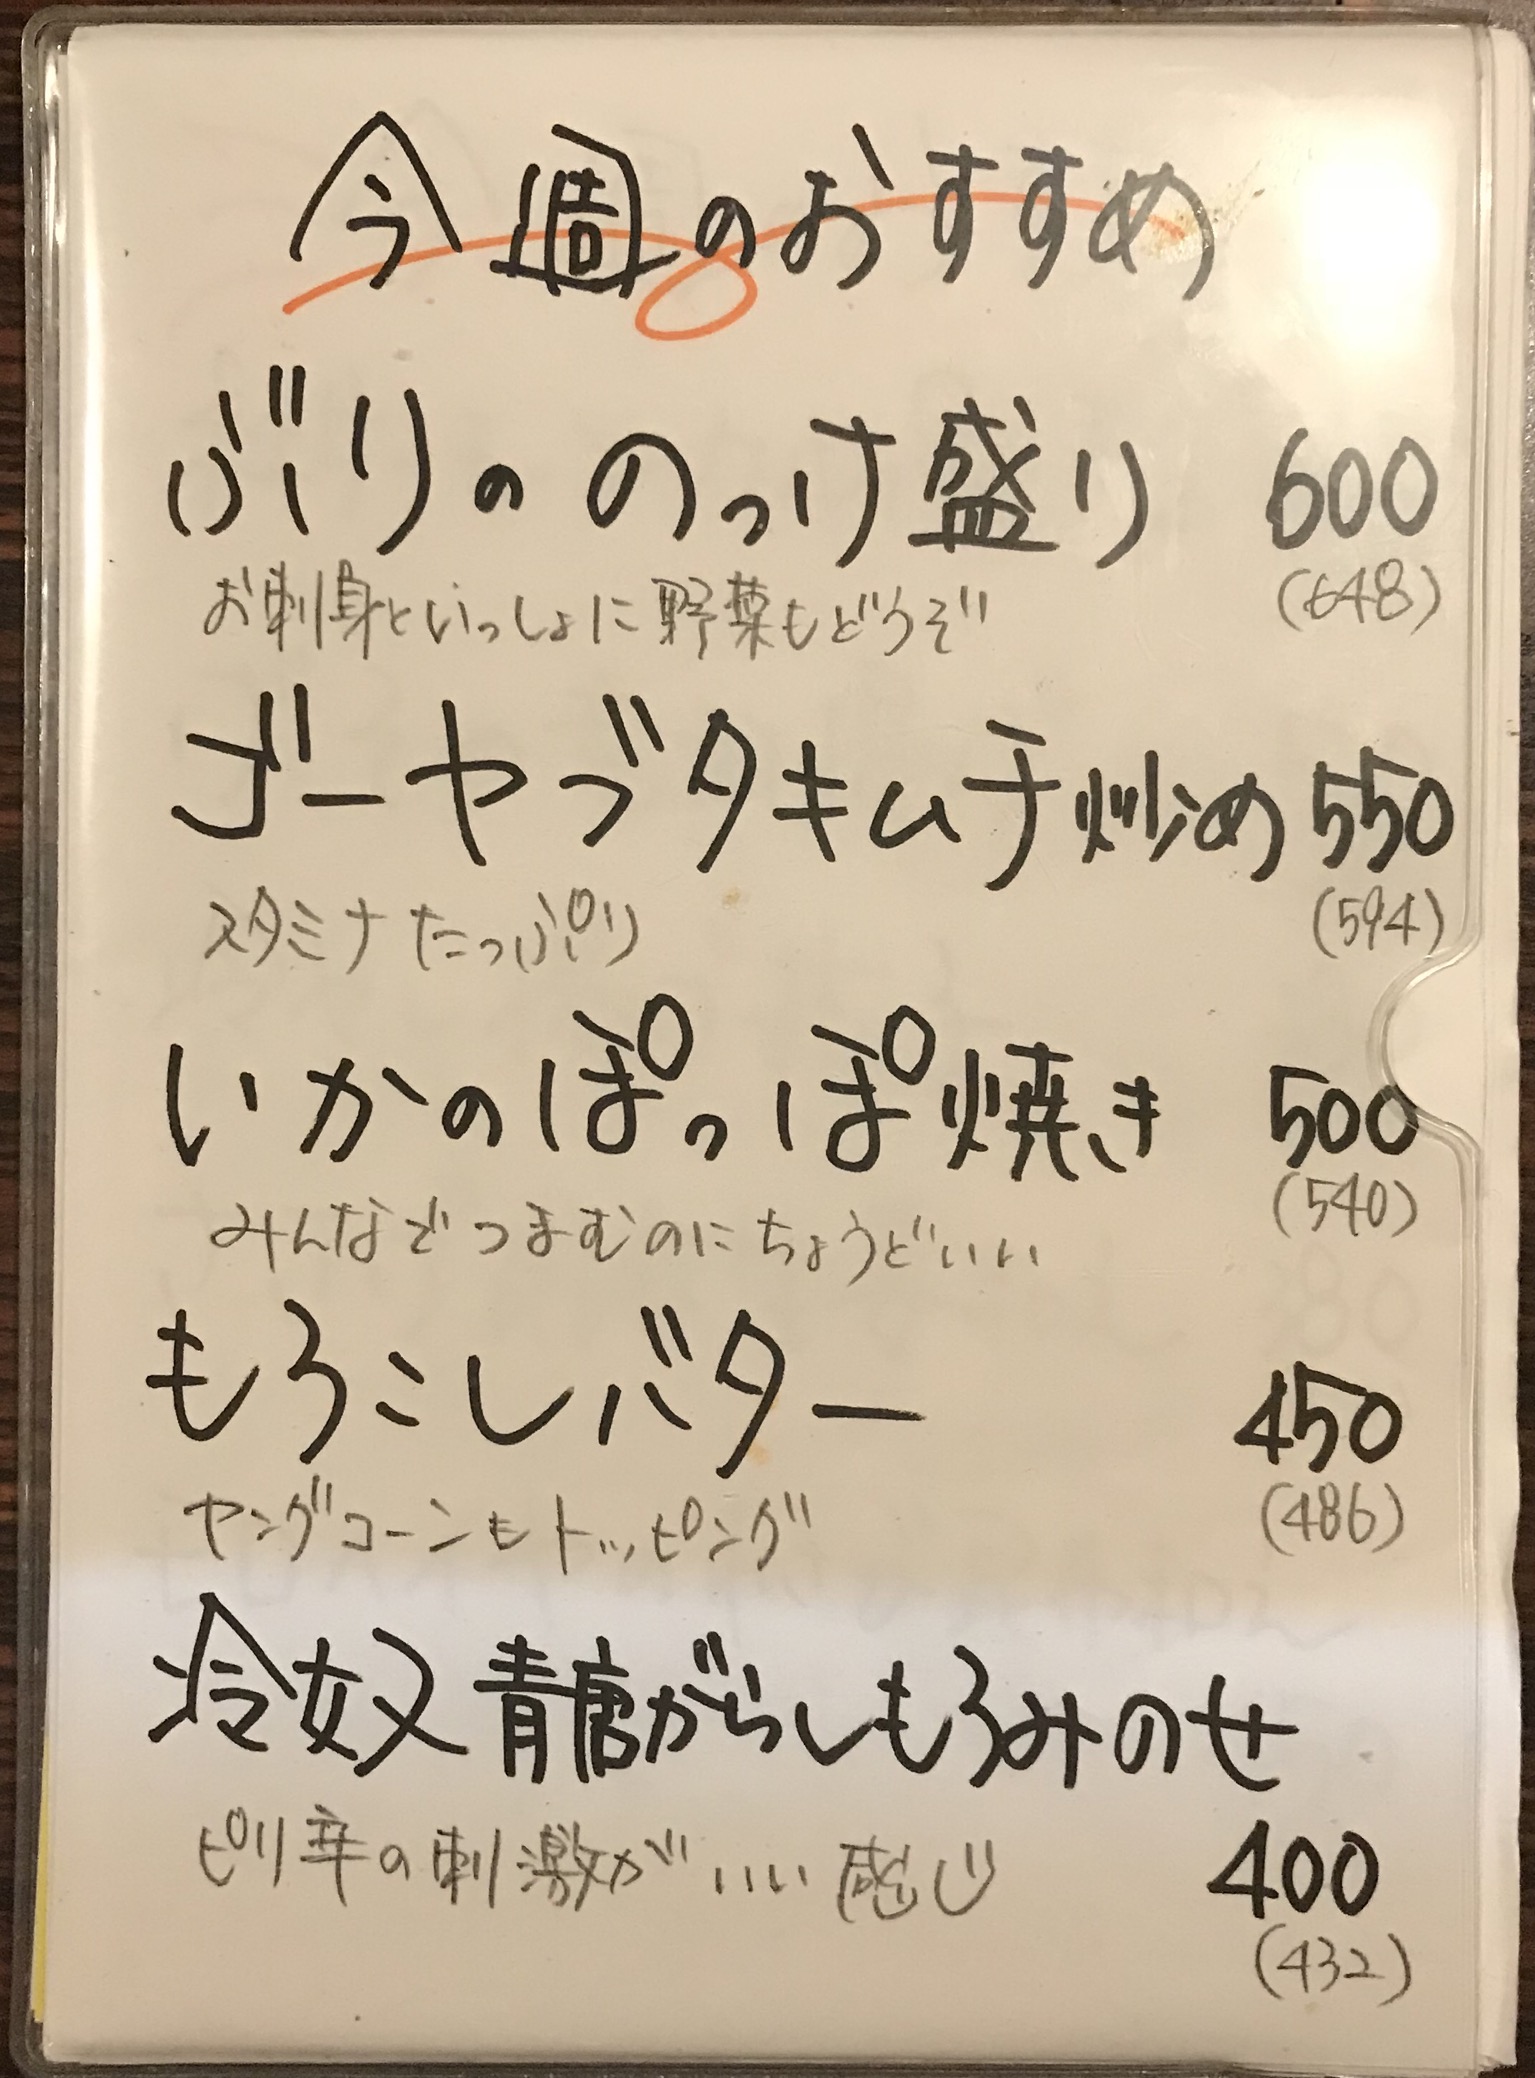 今週のおすすめ
ぶりの のっけ盛り 600
お刺身といっしょに野菜もどうぞ (648)
ゴーヤブタキムチ炒め 550
スタミナたっぷり (594)
いかのぽっぽ焼き 500
みんなでつまむのにちょうどいい (540)
もろこしバター 450
ヤングコーンもトッピング (486)
冷奴 青唐がらしもろみのせ
ピリ辛の刺激がいい感じ 400
(432)